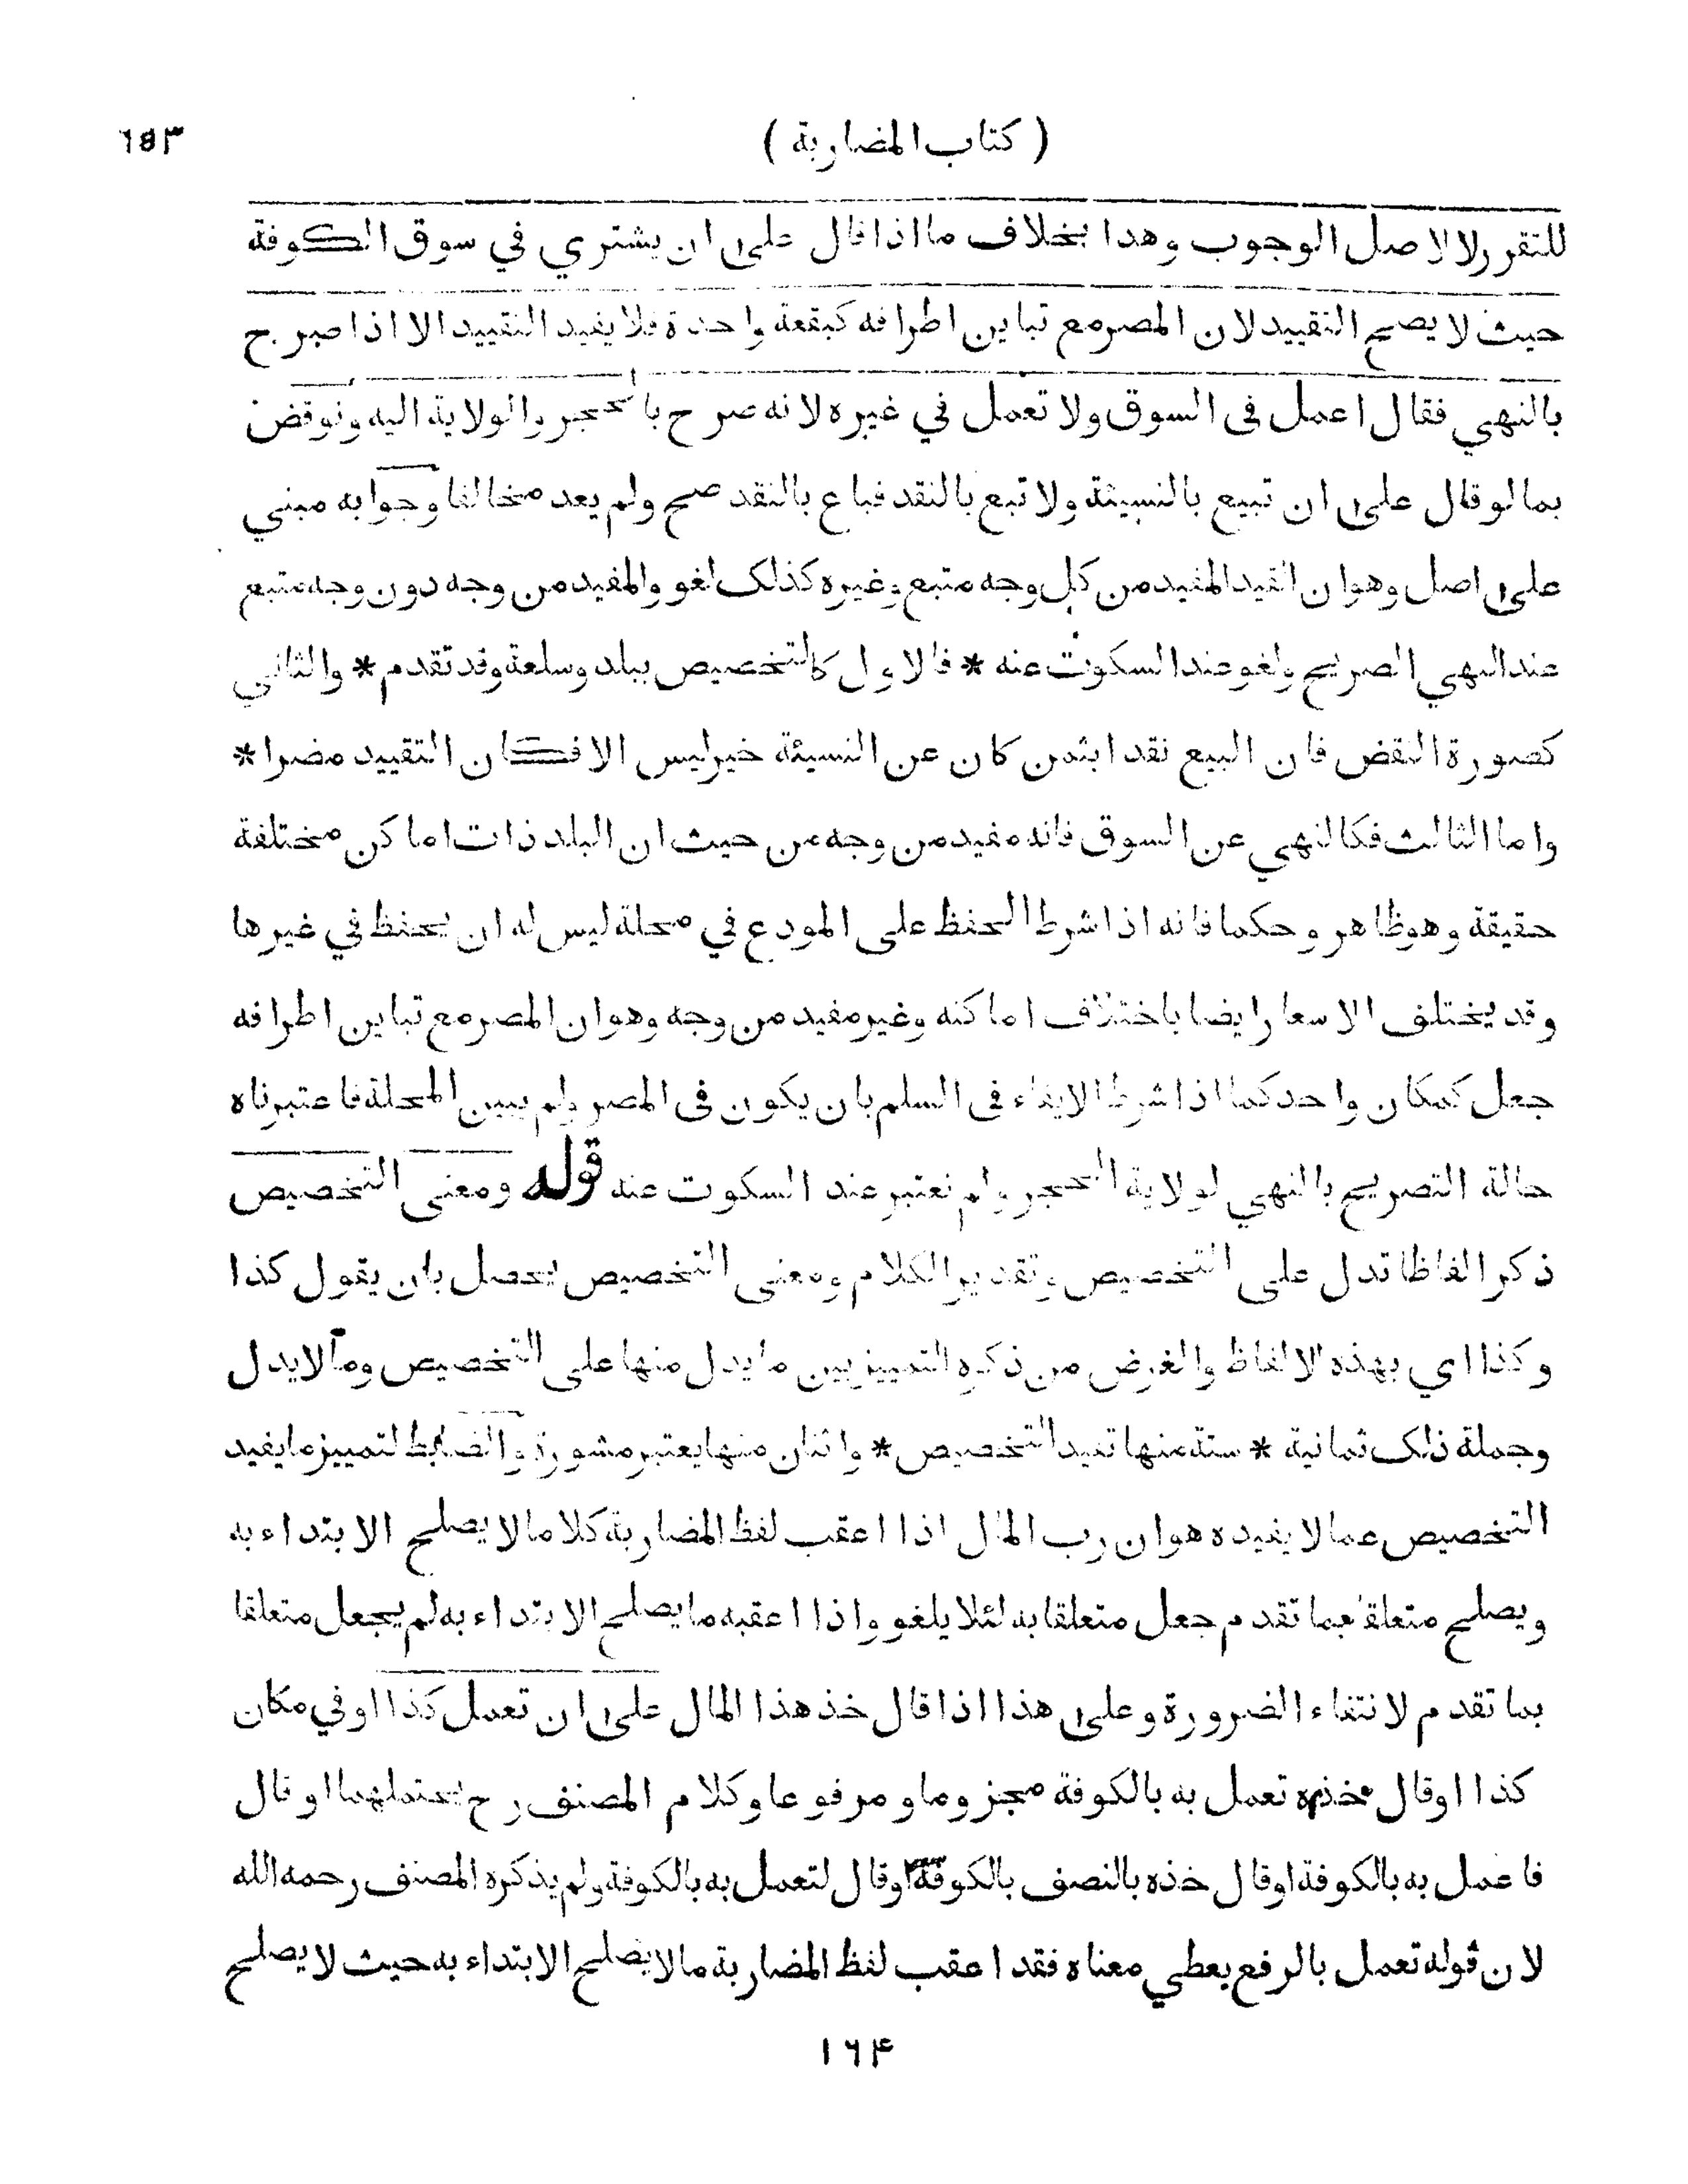 ( كتاب المضاربة )
٦٥٣
للتقرر لا لاصل الوجوب وهذا بخلاف ما اذا قال على ان يشتري في سوق الكوفة
حيث لا يصح التقييد لان المصر مع تباين اطرافه كبقعة واحدة فلا يفيد التقييد الا اذا صرح
بالنهي فقال اعمل في السوق ولا تعمل في غيره لانه صرح بالحجر والولاية اليه ونوقض
بما لو قال على ان تبيع بالنسيئة ولا تبع بالنقد فباع بالنقد صح ولم يعد مخالفا وجوابه مبني
على اصل وهو ان القيد المفيد من كل وجه متبع وغيره كذلك لغو والمفيد من وجه دون وجه متبع
عند النهي الصريح ولغو عند السكوت عنه * فالاول كالتخصيص ببلد وسلعة وقد تقدم * والثاني
كصورة النقض فان البيع نقدا بثمن كان عن النسيئة خير ليس الا فكان التقييد مضرا *
واما الثالث فكالنهي عن السوق فانه مفيد من وجه من حيث ان البلد ذات اماكن مختلفة
حقيقة وهو ظاهر وحكما فانه اذا شرط الحفظ على المودع في محلة ليس له ان يحفظ في غيرها
وقد يختلف الاسعار ايضا باختلاف اماكنه وغير مفيد من وجه وهو ان المصر مع تباين اطرافه
جعل كمكان واحد كما اذا شرط الايفاء في السلم بان يكون في المصر ولم يبين المحلة فاعتبرناه
حالة التصريح بالنهي لولاية الحجر ولم نعتبر عند السكوت عنه قوله ومعنى التخصيص
ذكر الفاظا تدل على التخصيص وتقدير الكلام ومعنى التخصيص يحصل بان يقول كذا
وكذا اي بهذه الالفاظ والغرض من ذكره التمييز بين ما يدل منها على التخصيص وما لا يدل
وجملة ذلك ثمانية * ستة منها تفيد التخصيص * واثنان منها يعتبر مشورة والضابط لتمييز ما يفيد
التخصيص عما لا يفيده هو ان رب المال اذا اعقب لفظ المضاربة كلاما لا يصلح الابتداء به
ويصلح متعلقا بما تقدم جعل متعلقا به لئلا يلغو واذا اعقبه ما يصلح الابتداء به لم يجعل متعلقا
بما تقدم لانتفاء الضرورة وعلى هذا اذا قال خذ هذا المال على ان تعمل كذا او في مكان
كذا او قال خذه تعمل به بالكوفة مجزوما ومرفوعا وكلام المصنف رح يحتملهما او قال
فاعمل به بالكوفة او قال خذه بالنصف بالكوفة او قال لتعمل به بالكوفة ولم يذكره المصنف رحمه الله
لان قوله تعمل بالرفع يعطي معناه فقد اعقب لفظ المضاربة ما لا يصلح الابتداء به حيث لا يصلح
١٦۴